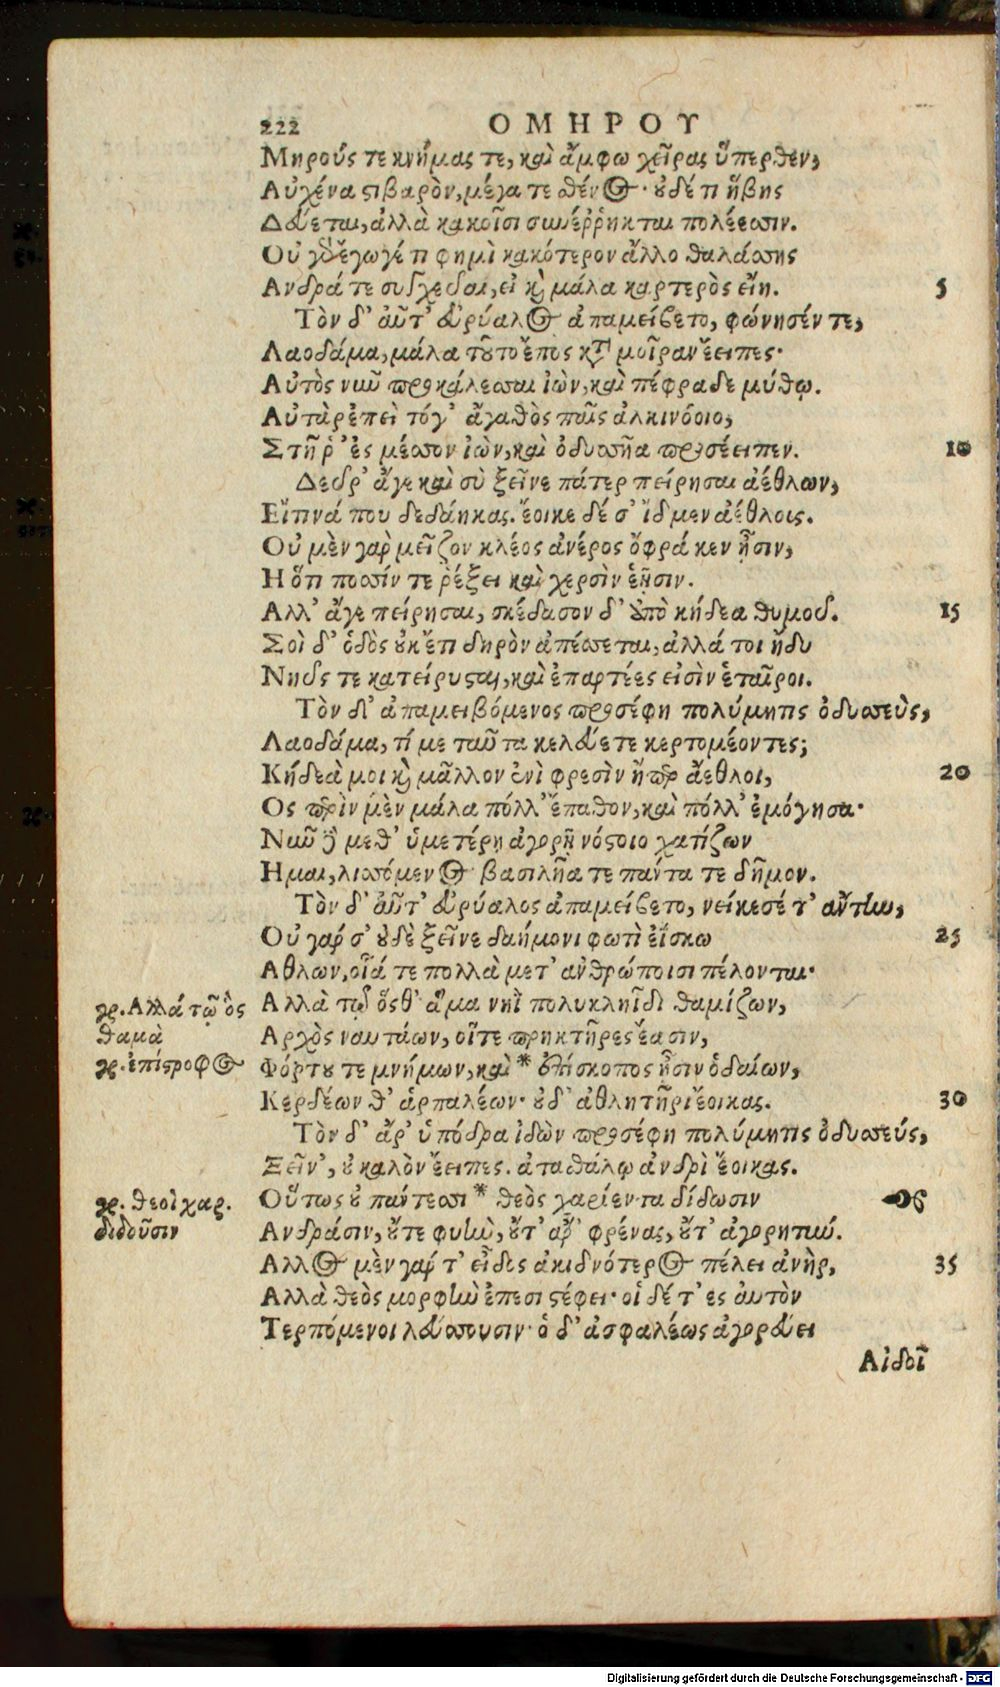 222 ΟΜΗΡΟΥ
Μηρούς τε κνήμας τε, καὶ ἄμφω χεῖρας ὕπερθεν,
Αὐχένα στιβαρὸν, μέγα τε σθένος· οὐδέ τι ἥβης
Δεύεται, ἀλλὰ κακοῖσι συνέῤῥηκται πολέεσσιν.
Οὐ γὰρ ἔγωγέ τι φημὶ κακότερον ἄλλο θαλάσσης
Ανδρά τε συγχεῦαι, εἰ καὶ μάλα καρτερὸς εἴη. 5
Τὸν δ' αὖτ' Εὐρύαλος ἀπαμείβετο, φώνησέν τε,
Λαοδάμα, μάλα τοῦτο ἔπος κατὰ μοῖραν ἔειπες·
Αὐτὸς νῦν προκάλεσσαι ἰὼν, καὶ πέφραδε μύθῳ.
Αὐτὰρ ἐπεὶ τόγ' ἄγαθὸς παῖς ἀλκινόοιο,
Στῆ ῥ' ἐς μέσσον ἰὼν, καὶ ὀδυσσῆα προσέειπεν. 10
Δεῦρ' ἄγε καὶ σὺ ξεῖνε πάτερ πείρησαι ἀέθλων,
Εἴ τινά που δεδάηκας. ἔοικε δέ σ' ἴδμεν ἀέθλοις.
Οὐ μὲν γὰρ μεῖζον κλέος ἀνέρος ὄφρά κεν ᾖσιν,
Η ὅτι ποσσίν τε ῥέξει καὶ χερσὶν ἑῇσιν.
Αλλ' ἄγε πείρησαι, σκέδασον δ' ἀπὸ κήδεα θυμοῦ. 15
Σοὶ δ' ὁδὸς οὐκ ἔτι δηρὸν ἀπέσσεται, ἀλλά τοι ἤδη
Νηῦς τε κατείρυσται, καὶ ἐπαρτέες εἰσὶν ἑταῖροι.
Τὸν δ' ἀπαμειβόμενος προσέφη πολύμητις ὀδυσσεὺς,
Λαοδάμα, τί με ταῦτα κελεύετε κερτομέοντες;
Κήδεά μοι καὶ μᾶλλον ἐνὶ φρεσὶν ἤπερ ἄεθλοι, 20
Ος πρὶν μὲν μάλα πόλλ' ἔπαθον, καὶ πόλλ' ἐμόγησα·
Νῦν δὲ μεθ' ὑμετέρῃ ἀγορῇ νόστοιο χατίζων
Ημαι, λισσόμενος βασιλῆα τε πάντα τε δῆμον.
Τὸν δ' αὖτ' Εὐρύαλος ἀπαμείβετο, νείκεσέ τ' ἄντην,
Οὐ γάρ σ' οὐδὲ ξεῖνε δαήμονι φωτὶ ἐΐσκω 25
Αθλων, οἷά τε πολλὰ μετ' ἀνθρώποισι πέλονται·
γρ. Αλλά τῷ ὃς Αλλὰ τῷ ὅσθ' ἅμα νηῒ πολυκληῗδι θαμίζων,
θαμὰ Αρχὸς ναυτάων, οἵτε πρηκτῆρες ἔασιν,
γρ. ἐπίστροφος Φόρτου τε μνήμων, καὶ * ἐπίσκοπος ᾖσιν ὁδαίων,
Κερδέων θ' ἁρπαλέων· οὐδ' ἀθλητῆρι ἔοικας. 30
Τὸν δ' ἄρ' ὑπόδρα ἰδὼν προσέφη πολύμητις ὀδυσσεύς,
Ξεῖν', οὐ καλὸν ἔειπες. ἀτασθάλῳ ἀνδρὶ ἔοικας.
γρ. θεοὶ χαρ. Οὕτως οὐ πάντεσσι * θεὸς χαρίεντα δίδωσιν
διδοῦσιν Ανδράσιν, οὔτε φυὴν, οὔτ' ἂρ' φρένας, οὔτ' ἀγορητύν.
Αλλος μὲν γάρ τ' εἶδος ἀκιδνότερος πέλει ἀνὴρ, 35
Αλλὰ θεὸς μορφὴν ἔπεσι στέφει· οἱ δέ τ' ἐς αὐτὸν
Τερπόμενοι λεύσσουσιν· ὁ δ' ἀσφαλέως ἀγορεύει
Αἰδοῖ
Digitalisierung gefördert durch die Deutsche Forschungsgemeinschaft - DFG